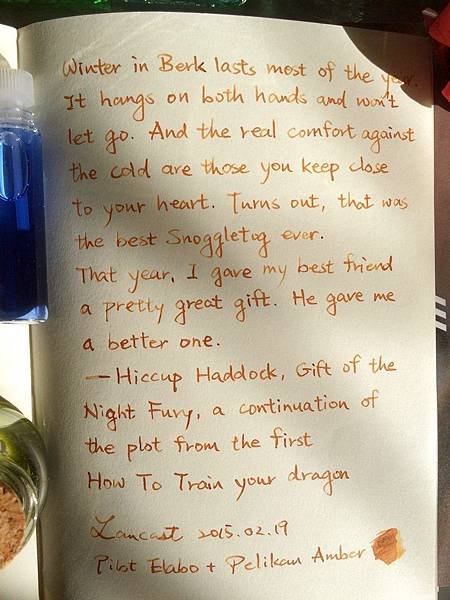 Winter in Berk lasts most of the year.
It hangs on both hands and won't
let go. And the real comfort against
the cold are those you keep close
to your heart. Turns out, that was
the best Snoggletog ever.
That year, I gave my best friend
a pretty great gift. He gave me
a better one.
— Hiccup Haddock, Gift of the
Night Fury, a continuation of
the plot from the first
How To Train your dragon
Lancast 2015.02.19
Pilot Elabo + Pelikan Amber